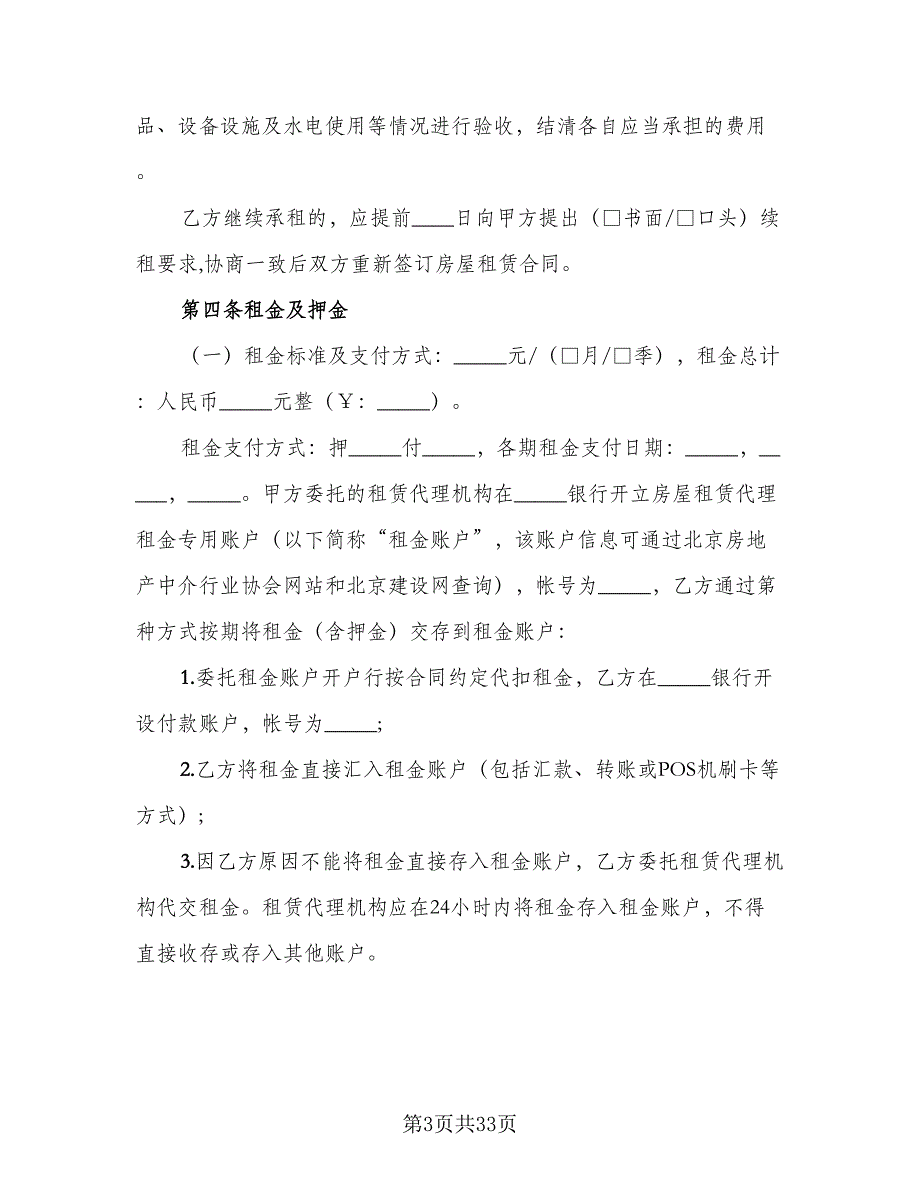 品、设备设施及水电使用等情况进行验收，结清各自应当承担的费用
。
乙方继续承租的，应提前____日向甲方提出（□书面/□口头）续
租要求,协商一致后双方重新签订房屋租赁合同。
第四条租金及押金
（一）租金标准及支付方式：_____元/（□月/□季），租金总计
：人民币_____元整（￥：_____）。
租金支付方式：押_____付_____，各期租金支付日期：_____，__
___，_____。甲方委托的租赁代理机构在_____银行开立房屋租赁代理
租金专用账户（以下简称“租金账户”，该账户信息可通过北京房地
产中介行业协会网站和北京建设网查询），帐号为_____，乙方通过第
种方式按期将租金（含押金）交存到租金账户：
1.委托租金账户开户行按合同约定代扣租金，乙方在_____银行开
设付款账户，帐号为_____;
2.乙方将租金直接汇入租金账户（包括汇款、转账或POS机刷卡等
方式）;
3.因乙方原因不能将租金直接存入租金账户，乙方委托租赁代理机
构代交租金。租赁代理机构应在24小时内将租金存入租金账户，不得
直接收存或存入其他账户。
第3页共33页